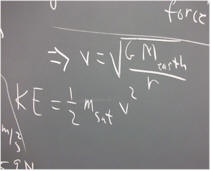 force
⇒ v = √(G M_earth / r)
KE = 1/2 m_sat v²
m/s